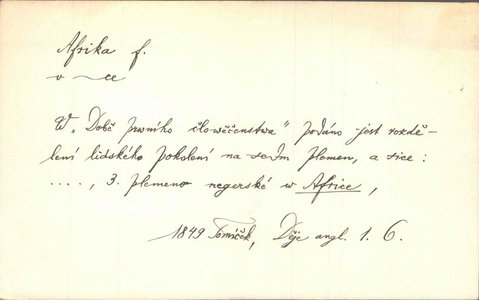 Afrika f.
v ~ce
W „Době prwního člowěčenstwa" podáno jest rozdě-
lení lidského pokolení na sedm plemen, a sice:
...., 3. plemeno negerské w Africe,
1849 Tomíček, Děje angl. 1. 6.